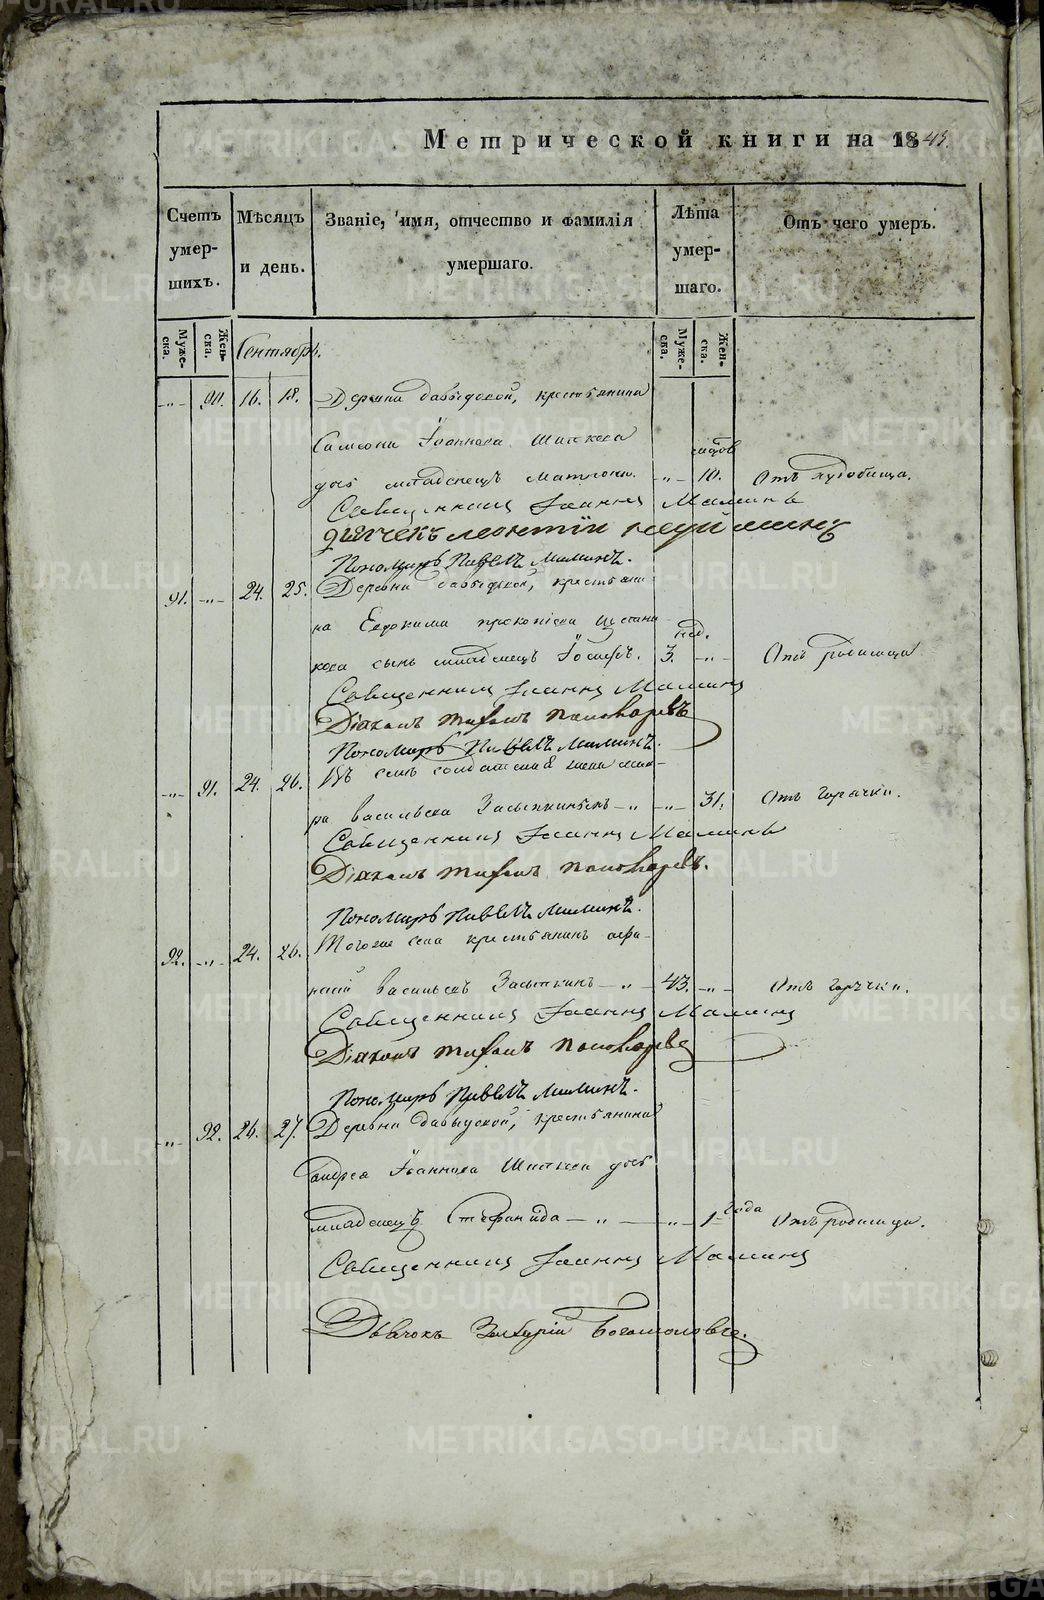 Метрической книги на 1843.
Счетъ умершихъ.
Мѣсяцъ и день.
Званіе, имя, отчество и фамилія умершаго.
Лѣта умершаго.
Отъ чего умеръ.
Мужеска.
Женска.
Сентябрь.
Мужеска.
Женска.
-"- 90. 16. 18. Деревни Давыдовой, крестьянина
Іоаннова
младенецъ Матрона. -"- 10. Отъ
Священникъ Іоаннъ Маминъ
Дьячекъ Леонтій
Пономарь Павелъ Маминъ.
91. -"- 24. 25. Деревни Давыдовой, крестьяни
на Евдокима Прокопіева
нед.
кова сынъ младенецъ Іосифъ. 3. -"- Отъ родимца
Священникъ Іоаннъ Маминъ
Діаконъ Тифонъ Пономаревъ
Пономарь Павелъ Маминъ.
-"- 91. 24. 26. солдатская жена
ра Васильева Засыпкина -"- -"- 31. Отъ горячки.
Священникъ Іоаннъ Маминъ
Діаконъ Тифонъ Пономаревъ.
Пономарь Павелъ Маминъ.
92. -"- 24. 26. Тогоже села крестьянинъ Афа-
насій Васильевъ Засыпкинъ -"- 43. -"- Отъ горячки.
Священникъ Іоаннъ Маминъ
Діаконъ Тифонъ Пономаревъ
Пономарь Павелъ Маминъ.
-"- 92. 26. 27. Деревни Давыдовой, крестьянина
Андрея Іоаннова дочь
младенецъ Стефанида -"- -"- 1 года Отъ родимца.
Священникъ Іоаннъ Маминъ
Дьячокъ Богомоловъ.
METRIKI.GASO-URAL.RU